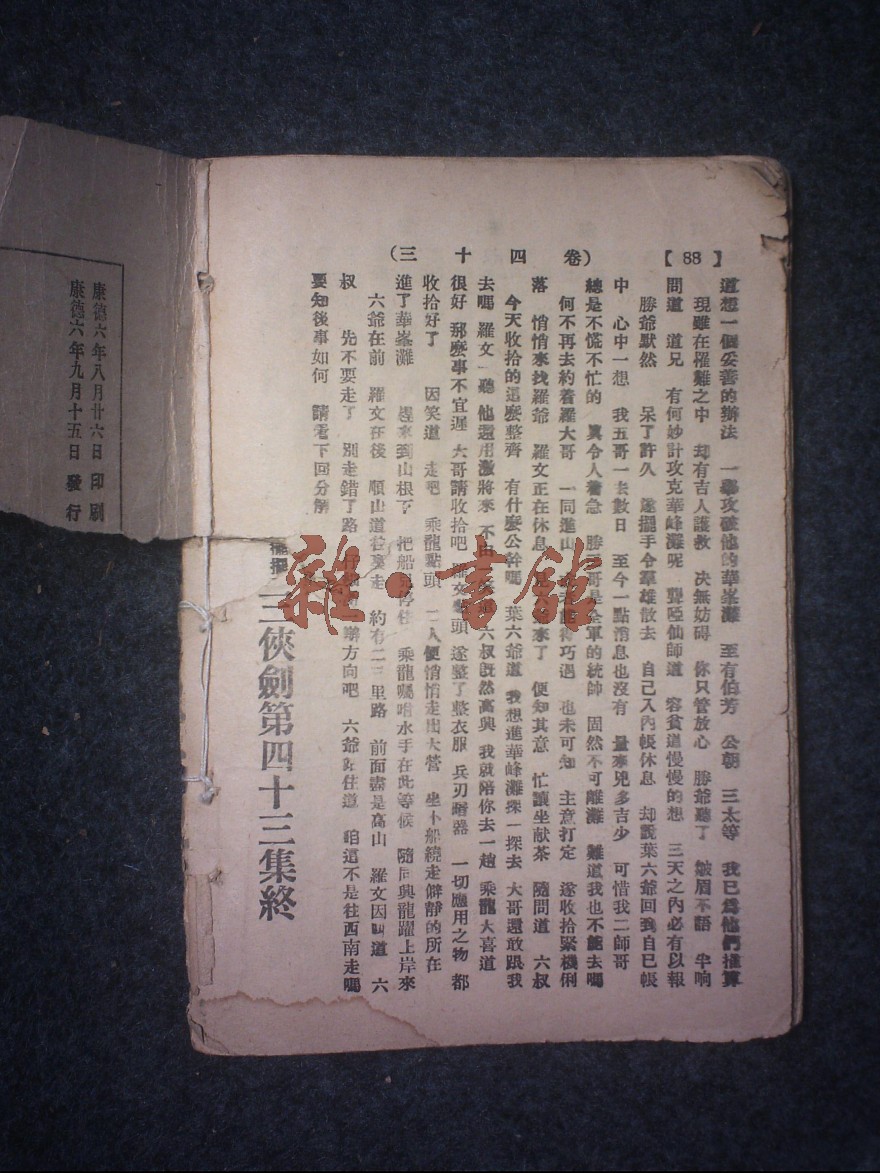 【88】
(卷四十三)
道想一個妥善的辦法 一舉攻破他的華峯灘 至有伯芳 公朝 三太等 我已爲他們推算
現雖在罹難之中 却有吉人護救 决無妨碍 你只管放心 勝爺聽了 皺眉不語 半晌
問道 道兄 有何妙計攻克華峰灘呢 聾啞仙師道 容貧道慢慢的想 三天之內必有以報
勝爺默然 呆了許久 遂擺手令羣雄散去 自己入內帳休息 却說葉六爺回到自已帳
中 心中一想 我五哥一去數日 至今一點消息也沒有 量來兇多吉少 可惜我二師哥
總是不慌不忙的 眞令人着急 勝三哥是全軍的統帥 固然不可離灘 難道我也不能去嗎
何不再去約着羅大哥 一同進山 得巧遇 也未可知 主意打定 遂收拾緊機俐
落 悄悄來找羅爺 羅文正在休息 來了 便知其意 忙讓坐献茶 隨問道 六叔
今天收拾的這麽整齊 有什麽公幹嗎 葉六爺道 我想進華峰灘探一探去 大哥還敢跟我
去嗎 羅文一聽 他還用激將來 不由 六叔既然高興 我就陪你去一趟 乘龍大喜道
很好 那麽事不宜遲 大哥請收拾吧 羅文點頭 遂整了整衣服 兵刃暗器 一切應用之物 都
收拾好了 因笑道 走吧 乘龍點頭 二人便悄悄走出大營 坐小船繞走僻靜的所在
進了華峯灘 來到山根下 把船 停住 乘龍囑咐水手在此等候 隨同興龍躍上岸來
六爺在前 羅文在後 順山道往裏走 約有二三里路 前面盡是高山 羅文因叫道 六
叔 先不要走了 別走錯了路 辨方向吧 六爺站住道 咱這不是往西南走嗎
要知後事如何 請看下回分解
三俠劍第四十三集終
康德六年八月廿六日印刷
康德六年九月十五日發行
雜·書館